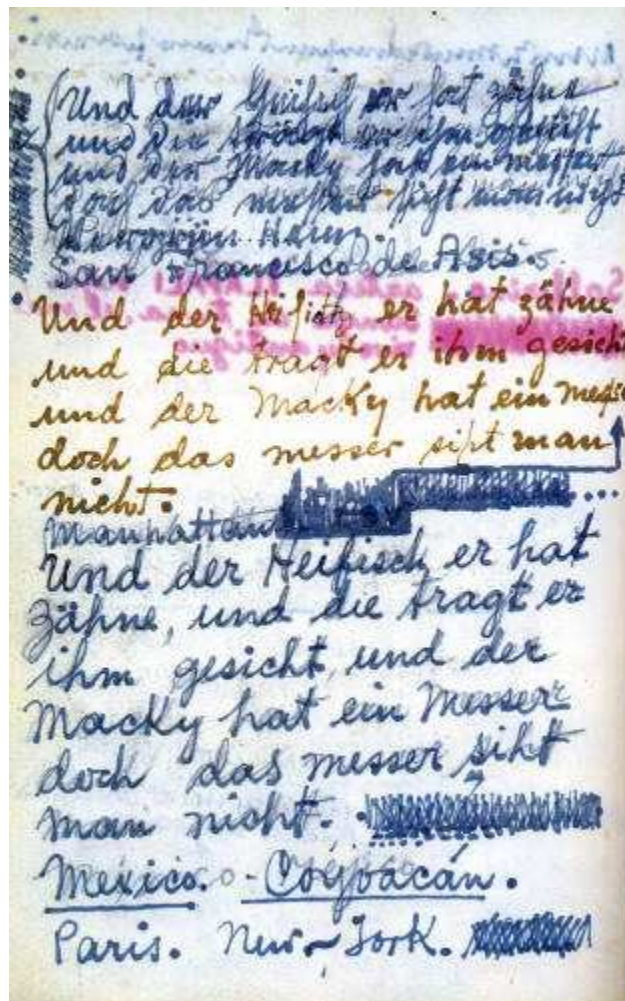 Und der Haifisch er hat zähne
und die trägt er ihm gesicht
und der Macky hat ein messer
doch das messer siht man nicht
San Francisco de Asis.
Und der Heifish er hat zähne
und die tragt er ihm gesicht
und der Macky hat ein messer
doch das messer siht man
nicht.
Manhattan
Und der Heifisch er hat
zähne, und die tragt er
ihm gesicht, und der
Macky hat ein Messer
doch das messer siht
man nicht.
Mexico. - Coyoacán.
Paris. New-York.